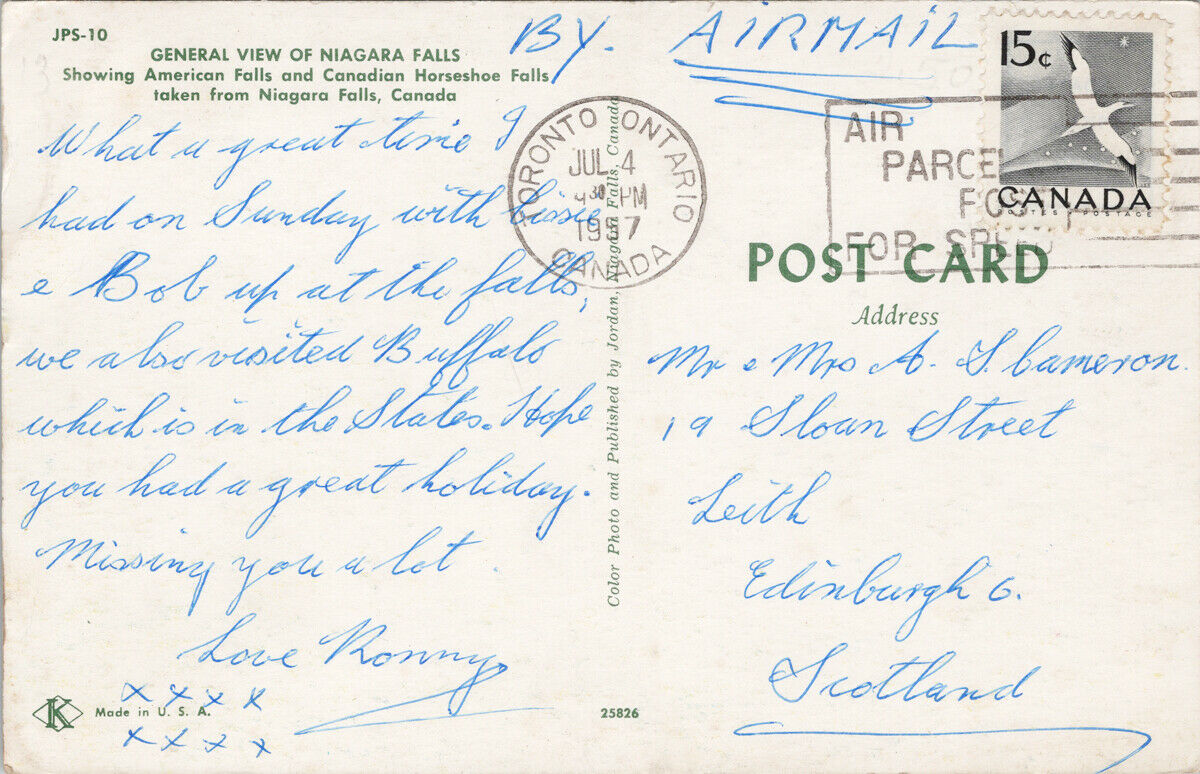 JPS-10
GENERAL VIEW OF NIAGARA FALLS
Showing American Falls and Canadian Horseshoe Falls
taken from Niagara Falls, Canada
BY. AIRMAIL
15¢
CANADA
POSTES - POSTAGE
TORONTO ONTARIO
JUL 4
30 PM
1957
CANADA
AIR
PARCE
FOR SPEED
What a great time I
had on Sunday with Lissie
e Bob up at the falls,
we also visited Buffalo
which is in the States. Hope
you had a great holiday.
Missing you a lot.
Love Ronny
x x x x
x x x x
K
Made in U. S. A.
Color Photo and Published by Jordan, Niagara Falls, Canada
25826
POST CARD
Address
Mr e Mrs A. S. Cameron.
19 Sloan Street
Leith
Edinburgh 6.
Scotland